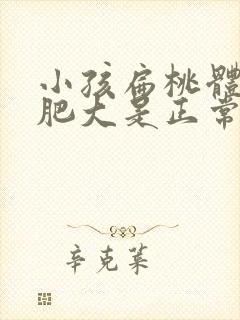 小孩扁桃體
肥大是正常
辛克萊